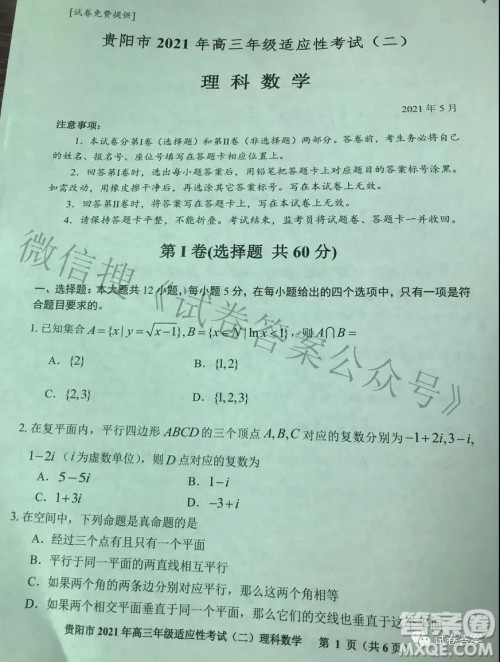 [试卷免费提供]
贵阳市 2021 年高三年级适应性考试（二）
理科数学
2021 年 5 月
注意事项：
1．本试卷分第Ⅰ卷（选择题）和第Ⅱ卷（非选择题）两部分。答卷前，考生务必将自己
的姓名、报名号、座位号填写在答题卡相应位置上。
2．回答第Ⅰ卷时，选出每小题答案后，用铅笔把答题卡上对应题目的答案标号涂黑。
如需改动，用橡皮擦干净后，再选涂其它答案标号。写在本试卷上无效。
3．回答第Ⅱ卷时，将答案写在答题卡上，写在本试卷上无效。
4．请保持答题卡平整，不能折叠。考试结束，监考员将试题卷、答题卡一并收回。
第Ⅰ卷(选择题 共 60 分)
一、选择题：本大题共 12 小题，每小题 5 分，在每小题给出的四个选项中，只有一项是符
合题目要求的。
1. 已知集合 A={x|y=√x-1}, B={x∈N|ln x<1}，则 A∩B=
A. {2} B. {1,2}
C. {2,3} D. {1,2,3}
2. 在复平面内，平行四边形 ABCD 的三个顶点 A,B,C 对应的复数分别为 -1+2i,3-i,
1-2i（i 为虚数单位），则 D 点对应的复数为
A. 5-5i B. 1-i
C. 1+3i D. -3+i
3. 在空间中，下列命题是真命题的是
A．经过三个点有且只有一个平面
B．平行于同一平面的两直线相互平行
C．如果两个角的两条边分别对应平行，那么这两个角相等
D．如果两个相交平面垂直于同一个平面，那么它们的交线也垂直于这
贵阳市 2021 年高三年级适应性考试（二）理科数学 第 1 页（共 6 页
微信搜《试卷答案公众号》
答案圈
试卷答案